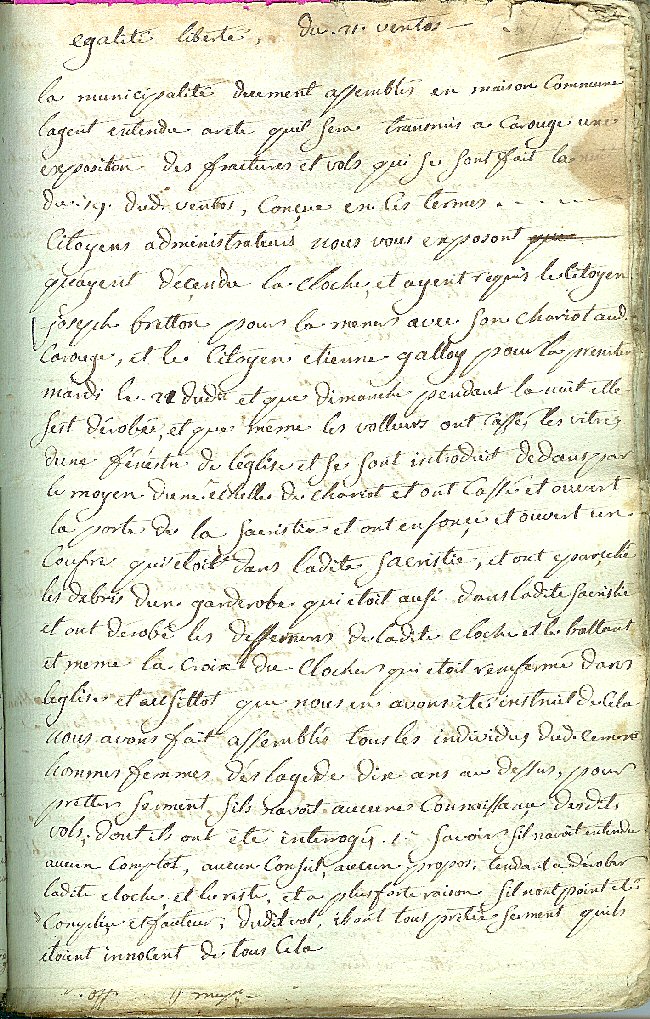 egalité liberté, du 21 ventos
la municipalité duement assemblés en maison Commune
lagent entendu arete quil sera transmis a Carouge une
exposition des fractures et vols qui se sont fait la
du 19 dud. ventos, Conçue en Ces termes
Citoyens administrateurs nous vous exposont
quayent décendu la cloche, et ayent requis le Citoyen
joseph bretton pour la mener avec son chariot aud.
Carouge, et le Citoyen etienne galloy pour la prendre
mardi le 21 dudit et que dimanche pendant la nuit elle
sest dérobée, et que même les volleurs ont Cassé les vitres
dune fénêtre de léglise et se sont introduit dedans par
le moyen dune échelle de chariot et ont Cassé et ouvert
la porte de la sacristie et ont enfoncé et ouvert un
Coufre qui étoit dans ladite sacristie, et ont
les debris dun garderobe qui étoit ausi dans ladite sacristie
et ont dérobé les ferremens de ladite cloche et le battant
et meme la croix du Clocher qui étoit renfermé dans
leglise et aussittot que nous en avons été instruit de Cela
nous avons fait assemblés tous les individus dud.
hommes femmes dès lage de dix ans au dessus, pour
pretter serment sils navoit aucune Connoissance desdits
vols, dont ils ont été interrogés, savoir sil navoit entendu
aucun Complot, aucun Conseil, aucun propos, tendant a dérober
ladite cloche, et le reste, et a plus forte raison sil nont point été
Complice et fauteur, dudit vol, ils ont tous prétés serment quils
étoient innocent de tous Cela